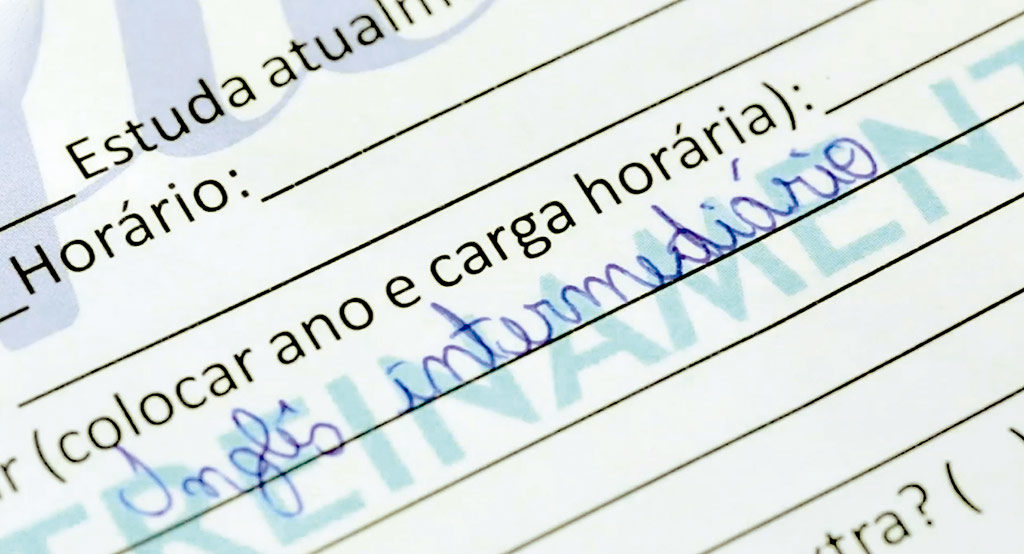 Estuda atualm
Horário:
r (colocar ano e carga horária):
Inglês intermediário
TREINAMENT
tra? (